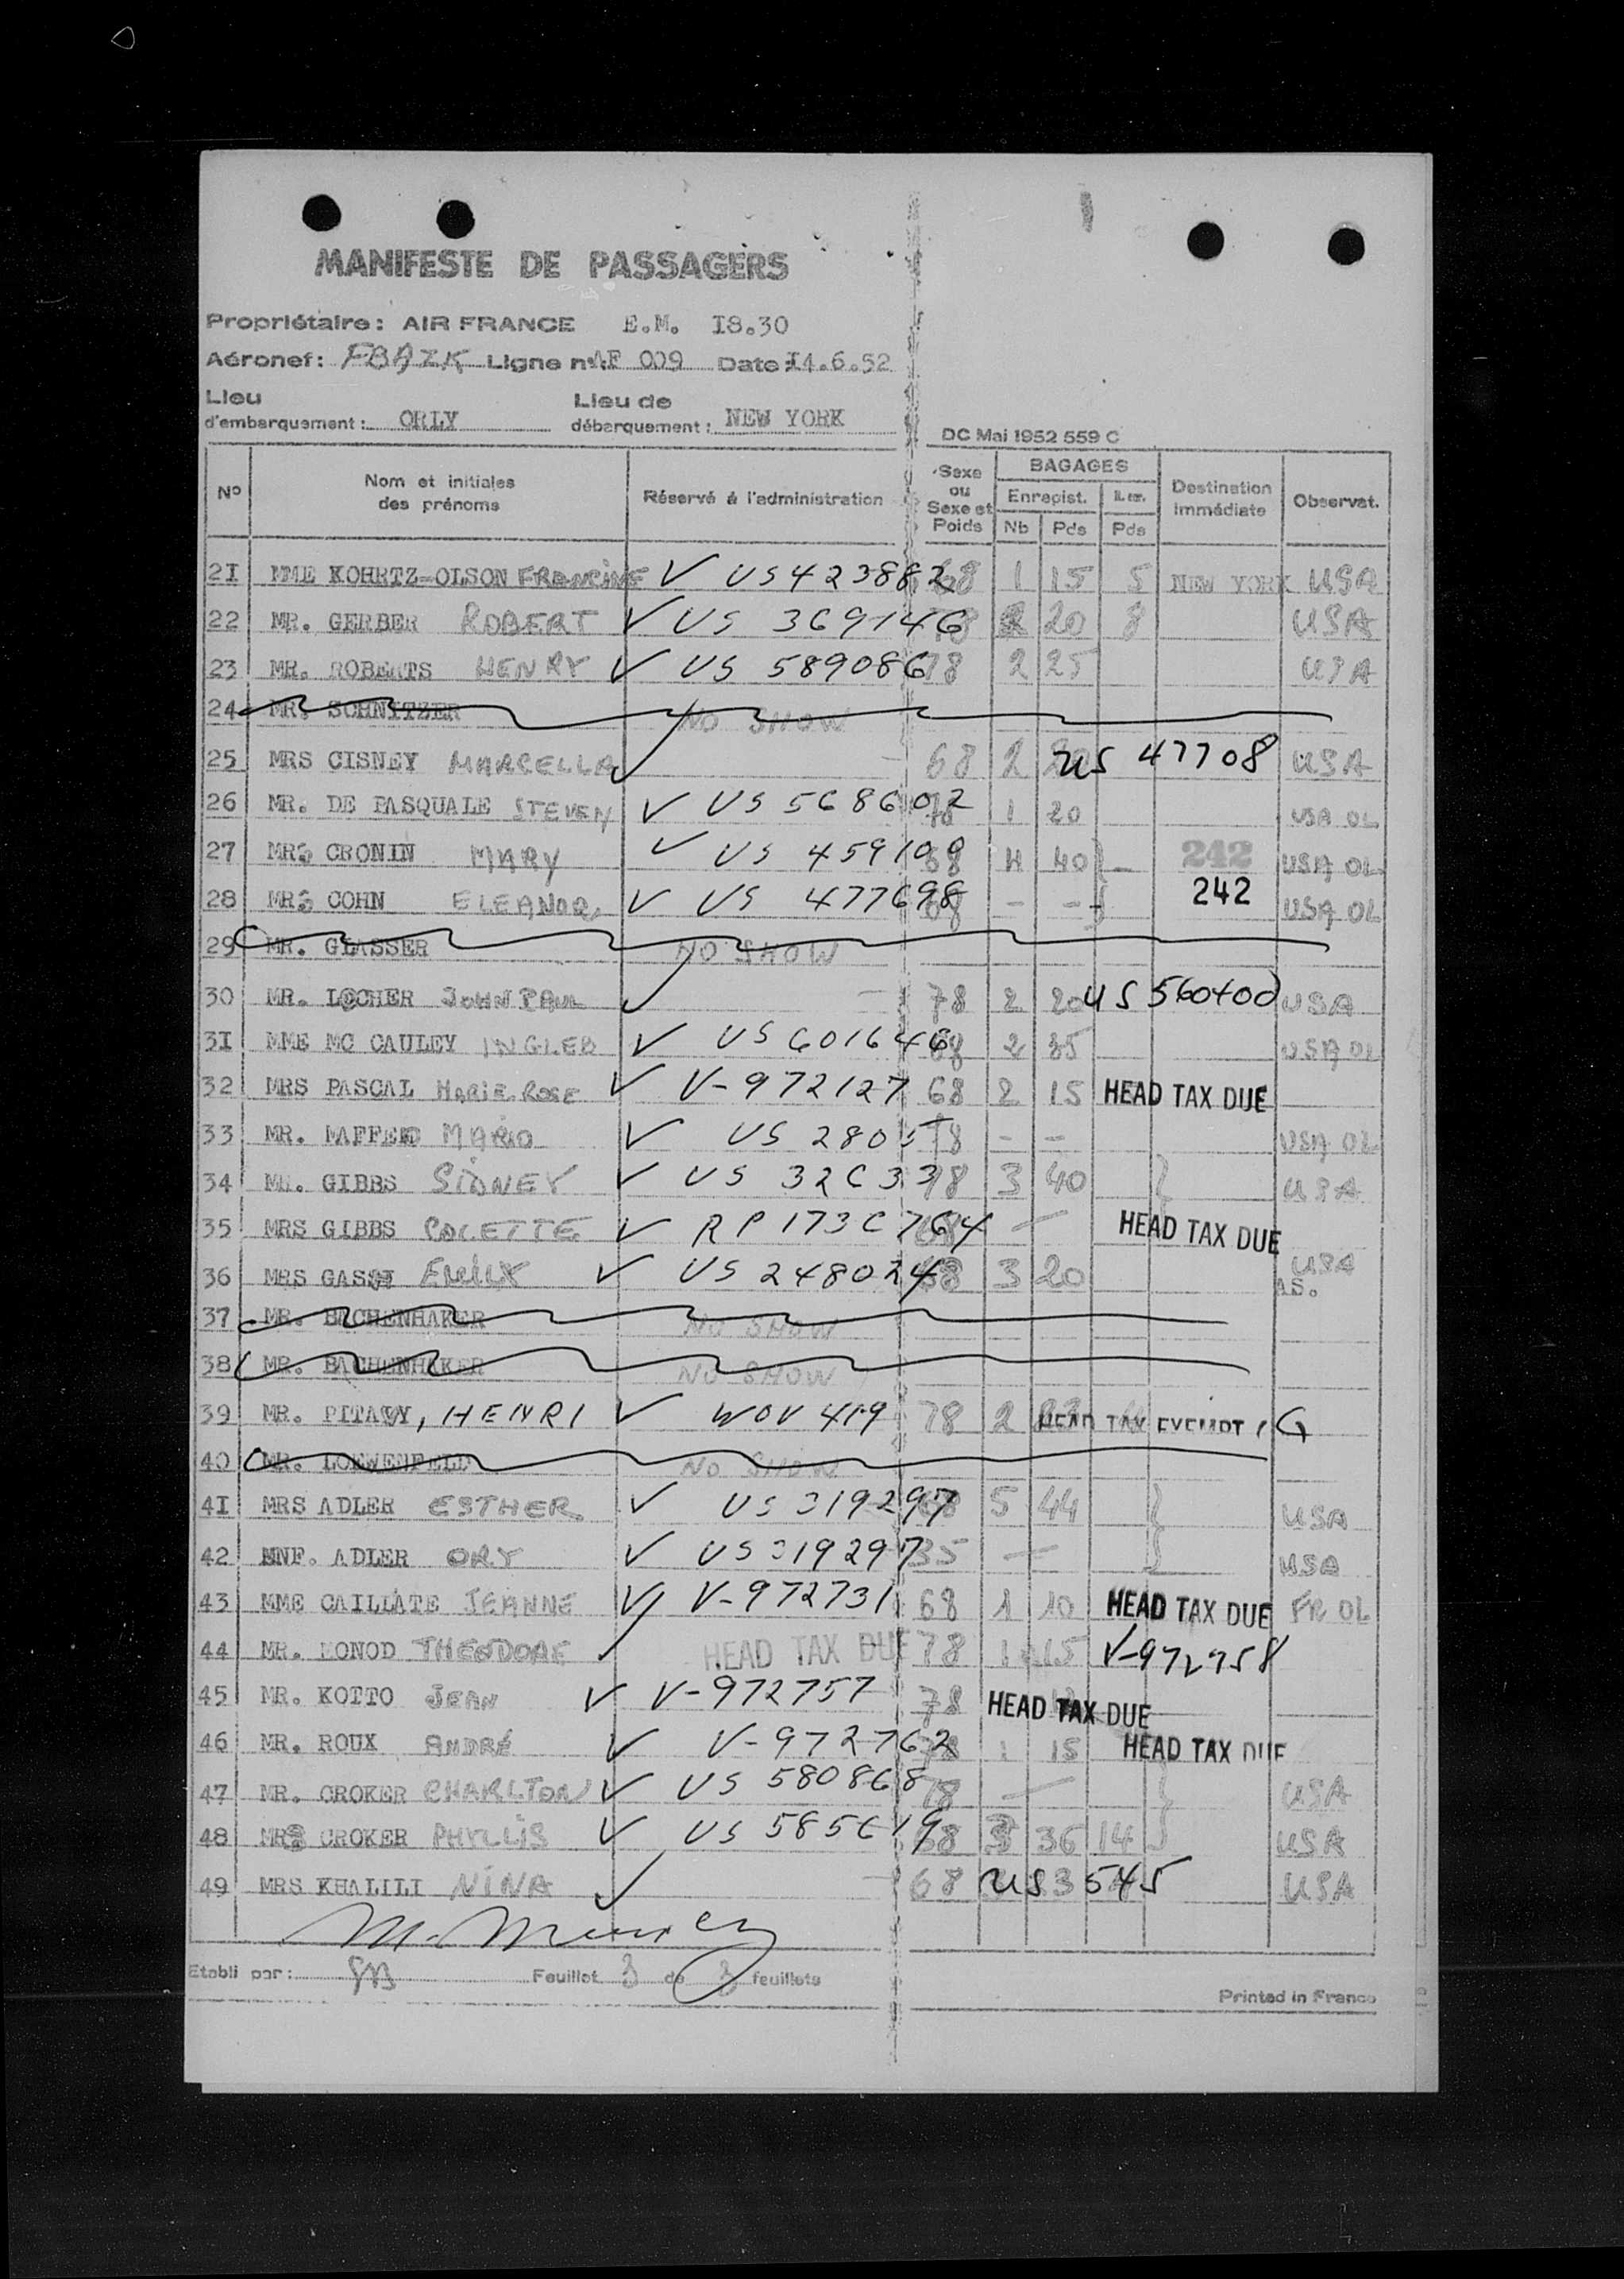 MANIFESTE DE PASSAGERS
Propriétaire: AIR FRANCE E.M. I8.30
Aéronef: FBAZK Ligne n° AF 009 Date I4.6.52
Lieu d'embarquement: ORLY Lieu de débarquement: NEW YORK
DC Mai 1952 559 C
N° Nom et initiales des prénoms Réservé à l'administration Sexe ou Sexe et Poids BAGAGES Enregist. Nb Pds Pds Destination immédiate Observat.
2I MME KOHRTZ-OLSON FRANCINE ✓ US 423882 68 1 15 5 NEW YORK USA
22 MR. GERBER ROBERT ✓ US 369146 78 20 8 USA
23 MR. ROBERTS HENRY ✓ US 589086 78 2 25 USA
24 MR. SCHNITZER NO SHOW
25 MRS CISNEY MARCELLA ✓ 68 2 US 47708 USA
26 MR. DE PASQUALE STEVEN ✓ US 568602 78 1 20 USA OL
27 MRS CRONIN MARY ✓ US 459100 68 4 40 242 USA OL
28 MRS COHN ELEANOR ✓ US 477698 68 - - 242 USA OL
29 MR. GLASSER NO SHOW
30 MR. LOCHER JOHN PAUL ✓ 78 2 20 US 560400 USA
3I MME MC CAULEY INGLEB ✓ US 601646 68 2 35 USA OL
32 MRS PASCAL MARIE ROSE ✓ V-972127 68 2 15 HEAD TAX DUE
33 MR. MARIO ✓ US 2805 78 - - USA OL
34 MR. GIBBS SIDNEY ✓ US 32C33 78 3 40 USA
35 MRS GIBBS COLETTE ✓ RP 173C764 68 — HEAD TAX DUE
36 MRS EMILY ✓ US 248024 68 3 20 USA AS.
37 MR. BACHENHAKER NO SHOW
38 MR. BACHENHAKER NO SHOW
39 MR. PITAVY, HENRI ✓ WOV 419 78 2 HEAD TAX EXEMPT, G
40 MR. LOEWENFELD NO SHOW
4I MRS ADLER ESTHER ✓ US 319297 68 5 44 USA
42 ENF. ADLER ORY ✓ US 319297 35 — USA
43 MME CAILLATE JEANNE ✓ V-972731 68 1 10 HEAD TAX DUE FR OL
44 MR. MONOD THEODORE ✓ HEAD TAX DUE 78 1 15 V-972758
45 MR. KOTTO JEAN ✓ V-972757 78 HEAD TAX DUE
46 MR. ROUX ANDRÉ ✓ V-972762 78 1 15 HEAD TAX DUE
47 MR. CROKER CHARLTON ✓ US 580868 78 — USA
48 MRS CROKER PHYLLIS ✓ US 585619 68 36 14 USA
49 MRS KHALILI NINA ✓ 68 US 3 545 USA
Etabli par: Feuillet 3 de 3 feuillets
Printed in France